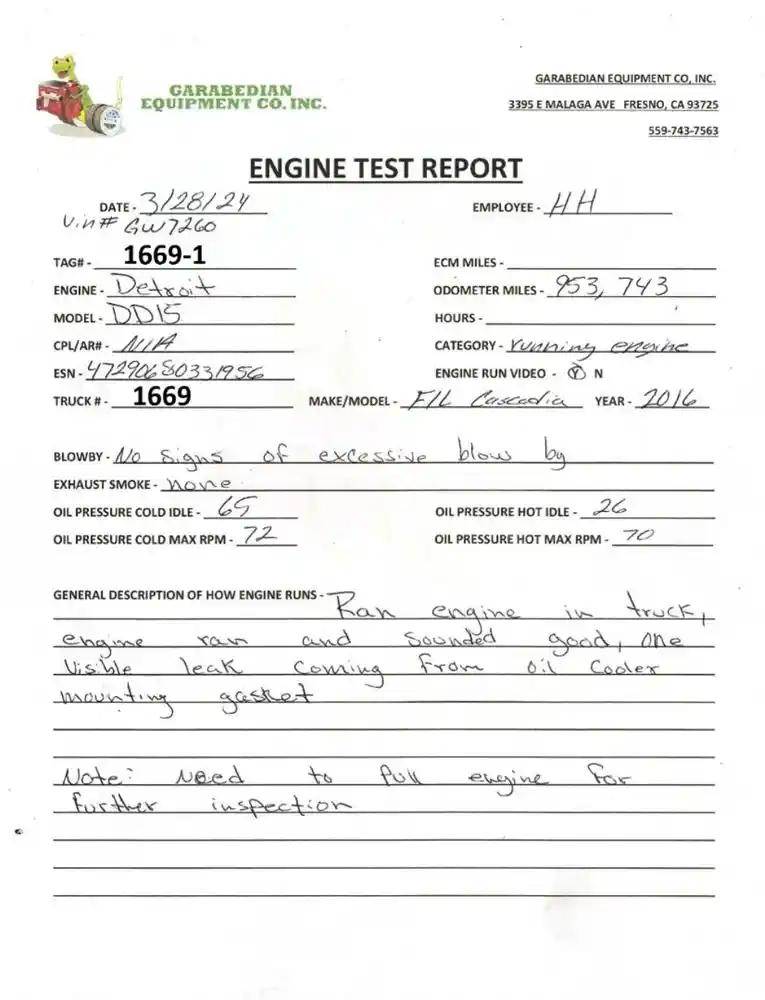 GARABEDIAN
EQUIPMENT CO. INC.
GARABEDIAN EQUIPMENT CO, INC.
3395 E MALAGA AVE FRESNO, CA 93725
559-743-7563
ENGINE TEST REPORT
DATE - 3/28/24 EMPLOYEE - HH
Vin# GW7260
TAG# - 1669-1 ECM MILES -
ENGINE - Detroit ODOMETER MILES - 953,743
MODEL - DD15 HOURS -
CPL/AR# - N/A CATEGORY - running engine
ESN - 472906S0331956 ENGINE RUN VIDEO - Y N
TRUCK # - 1669 MAKE/MODEL - F/L Cascadia YEAR - 2016
BLOWBY - No Signs of excessive blow by
EXHAUST SMOKE - none
OIL PRESSURE COLD IDLE - 65 OIL PRESSURE HOT IDLE - 26
OIL PRESSURE COLD MAX RPM - 72 OIL PRESSURE HOT MAX RPM - 70
GENERAL DESCRIPTION OF HOW ENGINE RUNS - Ran engine in truck,
engine ran and sounded good, one
visible leak coming from oil cooler
mounting gasket
Note: Need to pull engine for
further inspection